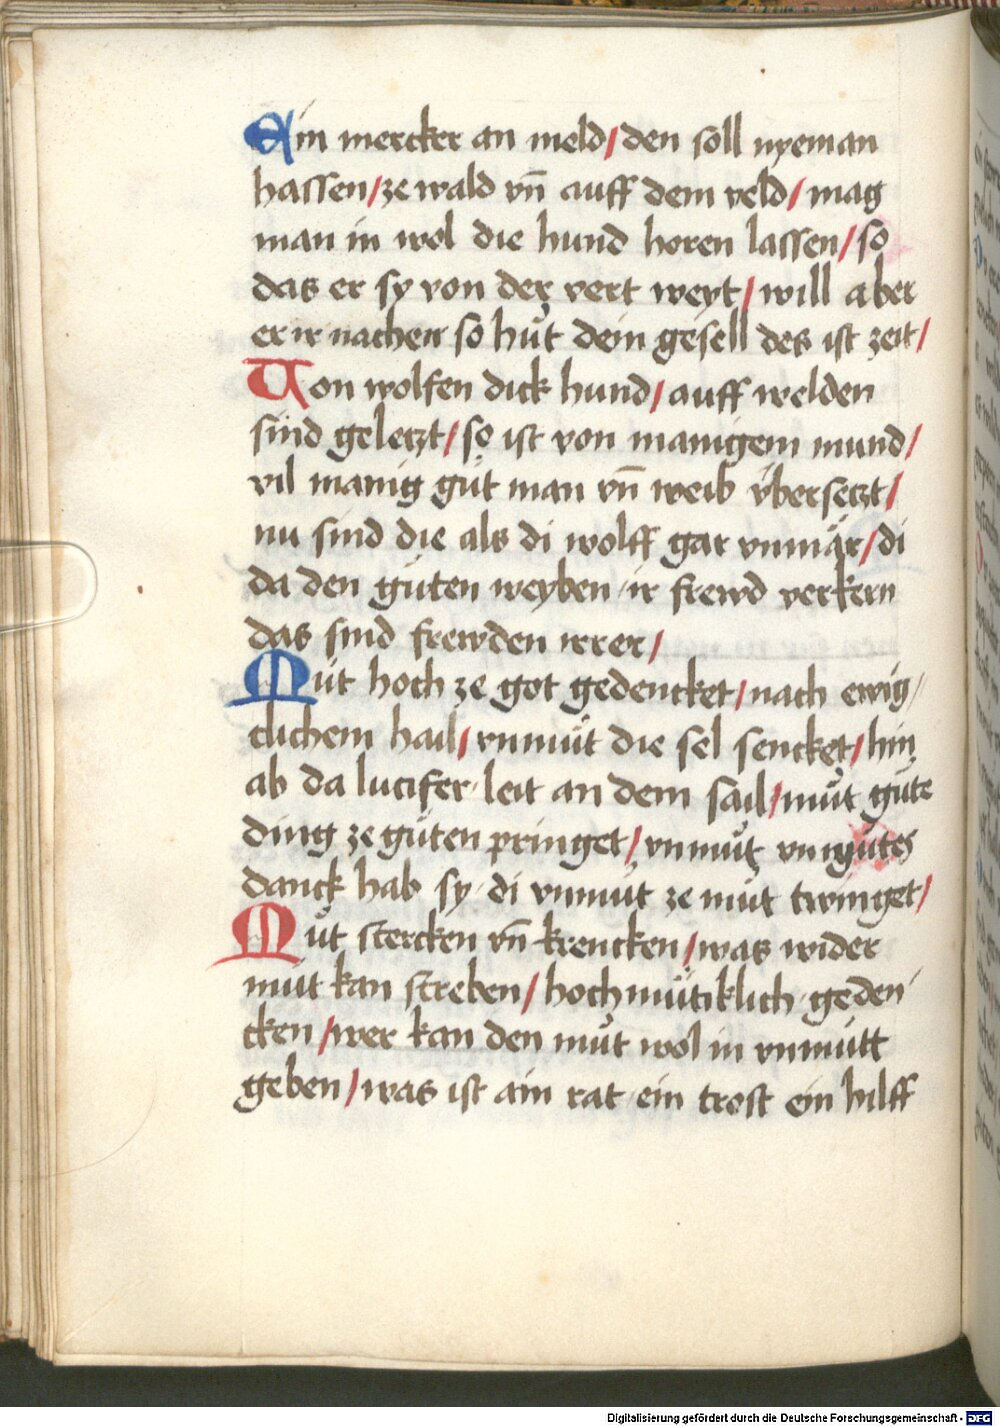 Ain mercker an meld/den soll nyeman
hassen/ze wald vn̄ auff dem veld/mag
man in wol die hund horen lassen/so
das er sy von der vert weyt/will aber
er ir nachen so hüt dein gesell des ist zeit/
Von wolfen dick hund/auff welden
sind geleczt/so ist von manigem mund/
vil manig güt man vn̄ weib v̈berseczt/
nu sind die als di wolff gar vnmär/di
da den güten weyben ir frewd verkern
das sind frewden irrer/
Müt hoch ze got gedencket/nach ewig/
clichem hail/vnmüt die sel sencket/hin
ab da lucifer leit an dem sail/müt güte
ding ze güten pringet/vnmüt vngütes
danck hab sy di vnmüt ze müt twinget/
Müt stercken vn̄ krencken/was wider
müt kan streben/hochmütiklich geden
cken/wer kan den müt wol in vnmütt
geben/was ist ain rat ein trost ein hilff
Digitalisierung gefördert durch die Deutsche Forschungsgemeinschaft - DFG